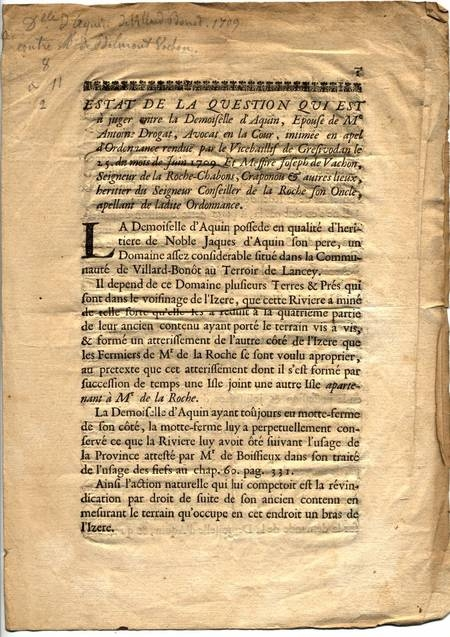 Dlle d'Aquin de Villard Bonot. 1709
contre Mr de Belmont Vachon.
8
a 11
2
ESTAT DE LA QUESTION QUI EST
à juger entre la Demoiselle d'Aquin, Epouse de Me
Antoine Drogat, Avocat en la Cour, intimée en apel
d'Ordonnance rendue par le Vicebaillif de Gresivodan le
25. du mois de Juin 1709. Et Messire Joseph de Vachon,
Seigneur de la Roche-Chabons, Craponou & autres lieux,
heritier du Seigneur Conseiller de la Roche son Oncle,
apellant de ladite Ordonnance.
LA Demoiselle d'Aquin possede en qualité d'heri-
tiere de Noble Jaques d'Aquin son pere, un
Domaine assez considerable situé dans la Commu-
nauté de Villard-Bonôt au Terroir de Lancey.
Il depend de ce Domaine plusieurs Terres & Prés qui
sont dans le voisinage de l'Izere, que cette Riviere a miné
de telle sorte qu'elle les a réduit à la quatrième partie
de leur ancien contenu ayant porté le terrain vis à vis,
& formé un atterissement de l'autre côté de l'Izere que
les Fermiers de Mr de la Roche se sont voulu aproprier,
au pretexte que cet atterissement dont il s'est formé par
succession de temps une Isle joint une autre Isle aparte-
nant à Mr de la Roche.
La Demoiselle d'Aquin ayant toûjours eu motte-ferme
de son côté, la motte-ferme luy a perpetuellement con-
servé ce que la Riviere luy avoit ôté suivant l'usage de
la Province attesté par Mr de Boissieux dans son traité
de l'usage des fiefs au chap. 60. pag. 331.
Ainsi l'action naturelle qui lui competoit est la révin-
dication par droit de suite de son ancien contenu en
mesurant le terrain qu'occupe en cet endroit un bras de
l'Izere.